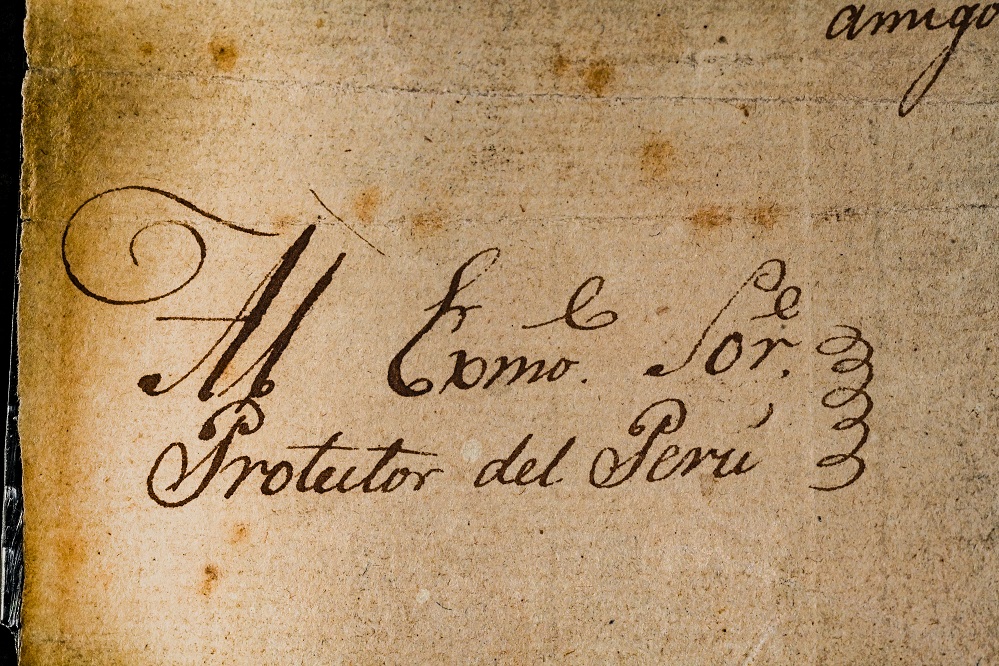 amigo
Al Exmo. Sor.
Protector del Perú